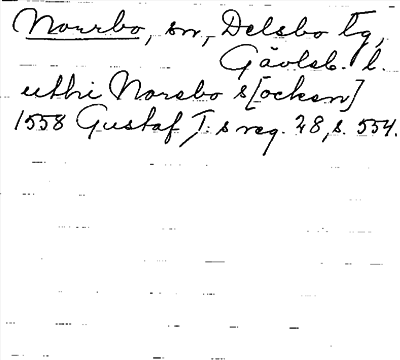 Norrbo, sn, Delsbo tg,
Gävleb. l.
uthi Norsbo s[ocken]
1558 Gustaf I:s reg. 28, s. 554.